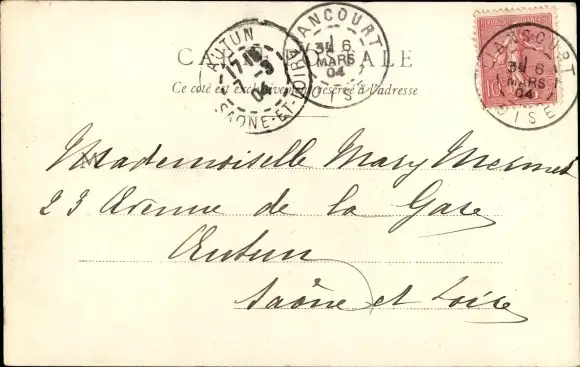 CARTE POSTALE
Ce côté est exclusivement réservé à l'adresse
AUTUN
17-15
7-3
04
SAONE-ET-LOIRE
LIANCOURT
3E 6
MARS
04
OISE
REPUBLIQUE FRANÇAISE
10
LIANCOURT
3E 6
MARS
04
OISE
Mademoiselle Mary Mermet
23 Avenue de la Gare
Autun
Saône et Loire